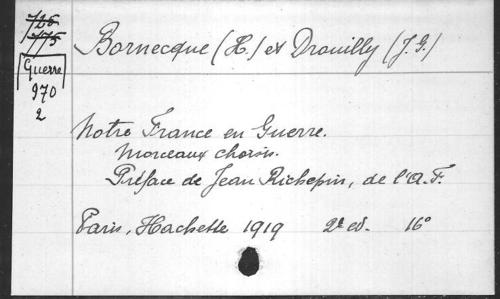 726
775
Guerre
970
2
Bornecque (H.) et Drouilly (J. G.)
Notre France en Guerre.
Morceaux choisis.
Préface de Jean Richepin, de l'A. F.
Paris, Hachette 1919 2e ed. 16°